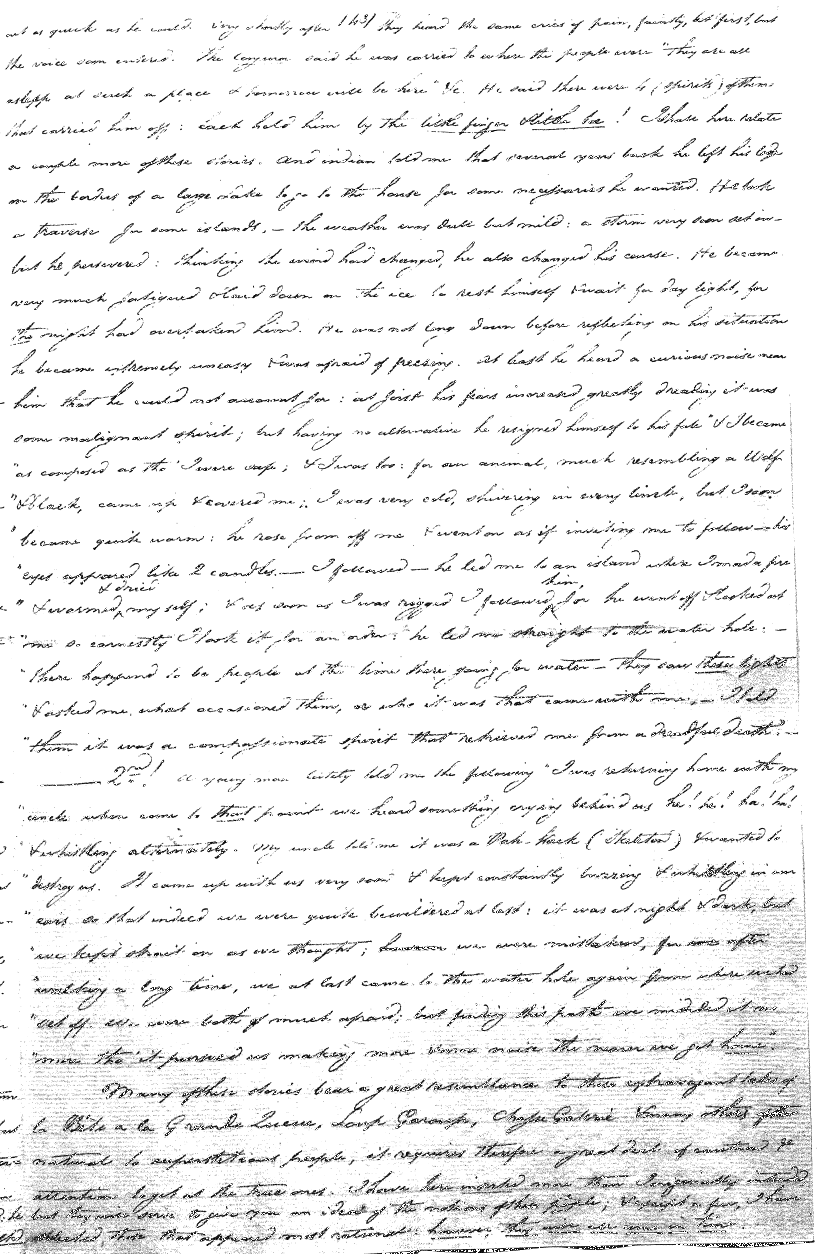 out as quick as he could. Very shortly after they heard the same cries of pain, faintly, at first, but
the voice soon entered. The conjuror said he was carried to where the people were "they are all
asleep at such a place & tomorrow will be here" &c. He said there were 4 (spirits) of them
that carried him off: each held him by the little finger & little toe! I shall here relate
a couple more of these stories. And indian told me that several years back he left his lodge
on the borders of a large lake to go to the house for some necessaries he wanted. He took
a traverse for some islands, — the weather was but mild: a storm very soon set in —
but he persevered: thinking the wind had changed, he also changed his course. He became
very much fatigued & laid down on the ice to rest himself & wait for day light, for
the night had overtaken him. He was not long down before reflecting on his situation
he became extremely uneasy & was afraid of freezing. At last he heard a curious noise near
him that he could not account for: at first his fears increased greatly dreading it was
some malignant spirit; but having no alternative he resigned himself to his fate "& I became
"as composed as tho' I were safe; & I was too: for an animal, much resembling a Wolf
"& black, came up & covered me; I was very cold, shivering in every limb, but I soon
"became quite warm: he rose from off me & went on as if inviting me to follow — his
"eyes appeared like 2 candles. — I followed — he led me to an island where I made a fire
& dried him,
"& warmed my self; & as soon as I was rigged I followed for he went off & looked at
"me so earnestly I took it for an order: he led me straight to the water hole: —
"there happened to be people at the time there going for water — they saw these lights
"& asked me what occasioned them, or who it was that came with me, — I told
"them it was a compassionate spirit that retrieved me from a dreadful death". —
2nd! A young man lately told me the following "I was returning home with my
"uncle when come to that point we heard something crying behind us he! he! ha! ha!
"& whistling alternately. My uncle told me it was a (Skeleton) & wanted to
"destroy us. It came up with us very soon & kept constantly buzzing & whistling in our
"ears so that indeed we were quite bewildered at last: it was at night & dark, but
"we kept strait on as we thought; however we were mistaken, for after
"walking a long time, we at last came to the water hole again from where we had
"set off. We were both of much afraid; but finding this path we minded it no
"more tho' it pursued us making more & more noise the nearer we got home".
Many of these stories bear a great resemblance to those extravagant tales of
la Bête a la Grande Queue, Loup Garoup, Chasse Galerie & many others
natural to superstitious people, it requires therefore a great deal of
attention to get at the true ones. I have here inserted more than I originally intended
but they may serve to give you an idea of the notions of these people; & except a few, I have
selected those that appeared most rational: however